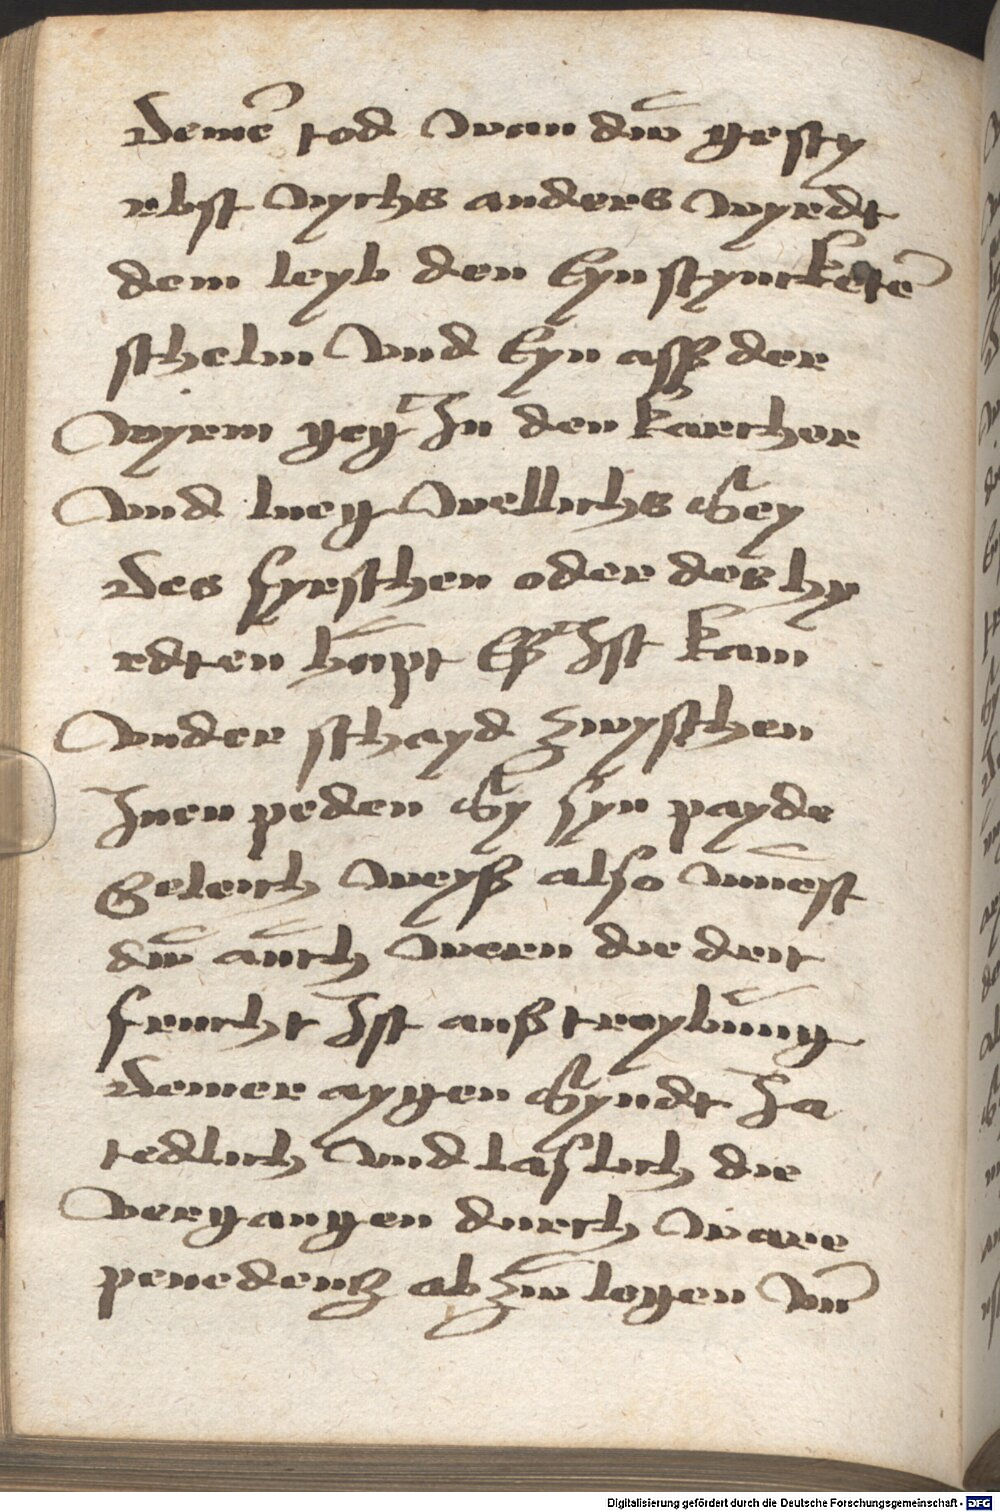 deinē tod wan dw̄ gesty
rbst wychs anders wyrdt
dem leyb den Eyn styncketē
schelm vnd Eyn asß der
wyrm geg In den karcher
vnd lueg wellichs Sey
des fyrschen oder des hy
rdten haupt Eß Ist kam
vnder schayd zwyschen
Inen peden Sy syn payde
Geleich weyß also muest
dw̄ auch wern die drit
frucht Ist außtreybung
deiner aygen Syndt Ja
tedlich vnd laslich die
vergangen durch ware
penedentz ab zw̄ legen vn̄
Digitalisierung gefördert durch die Deutsche Forschungsgemeinschaft - DFG